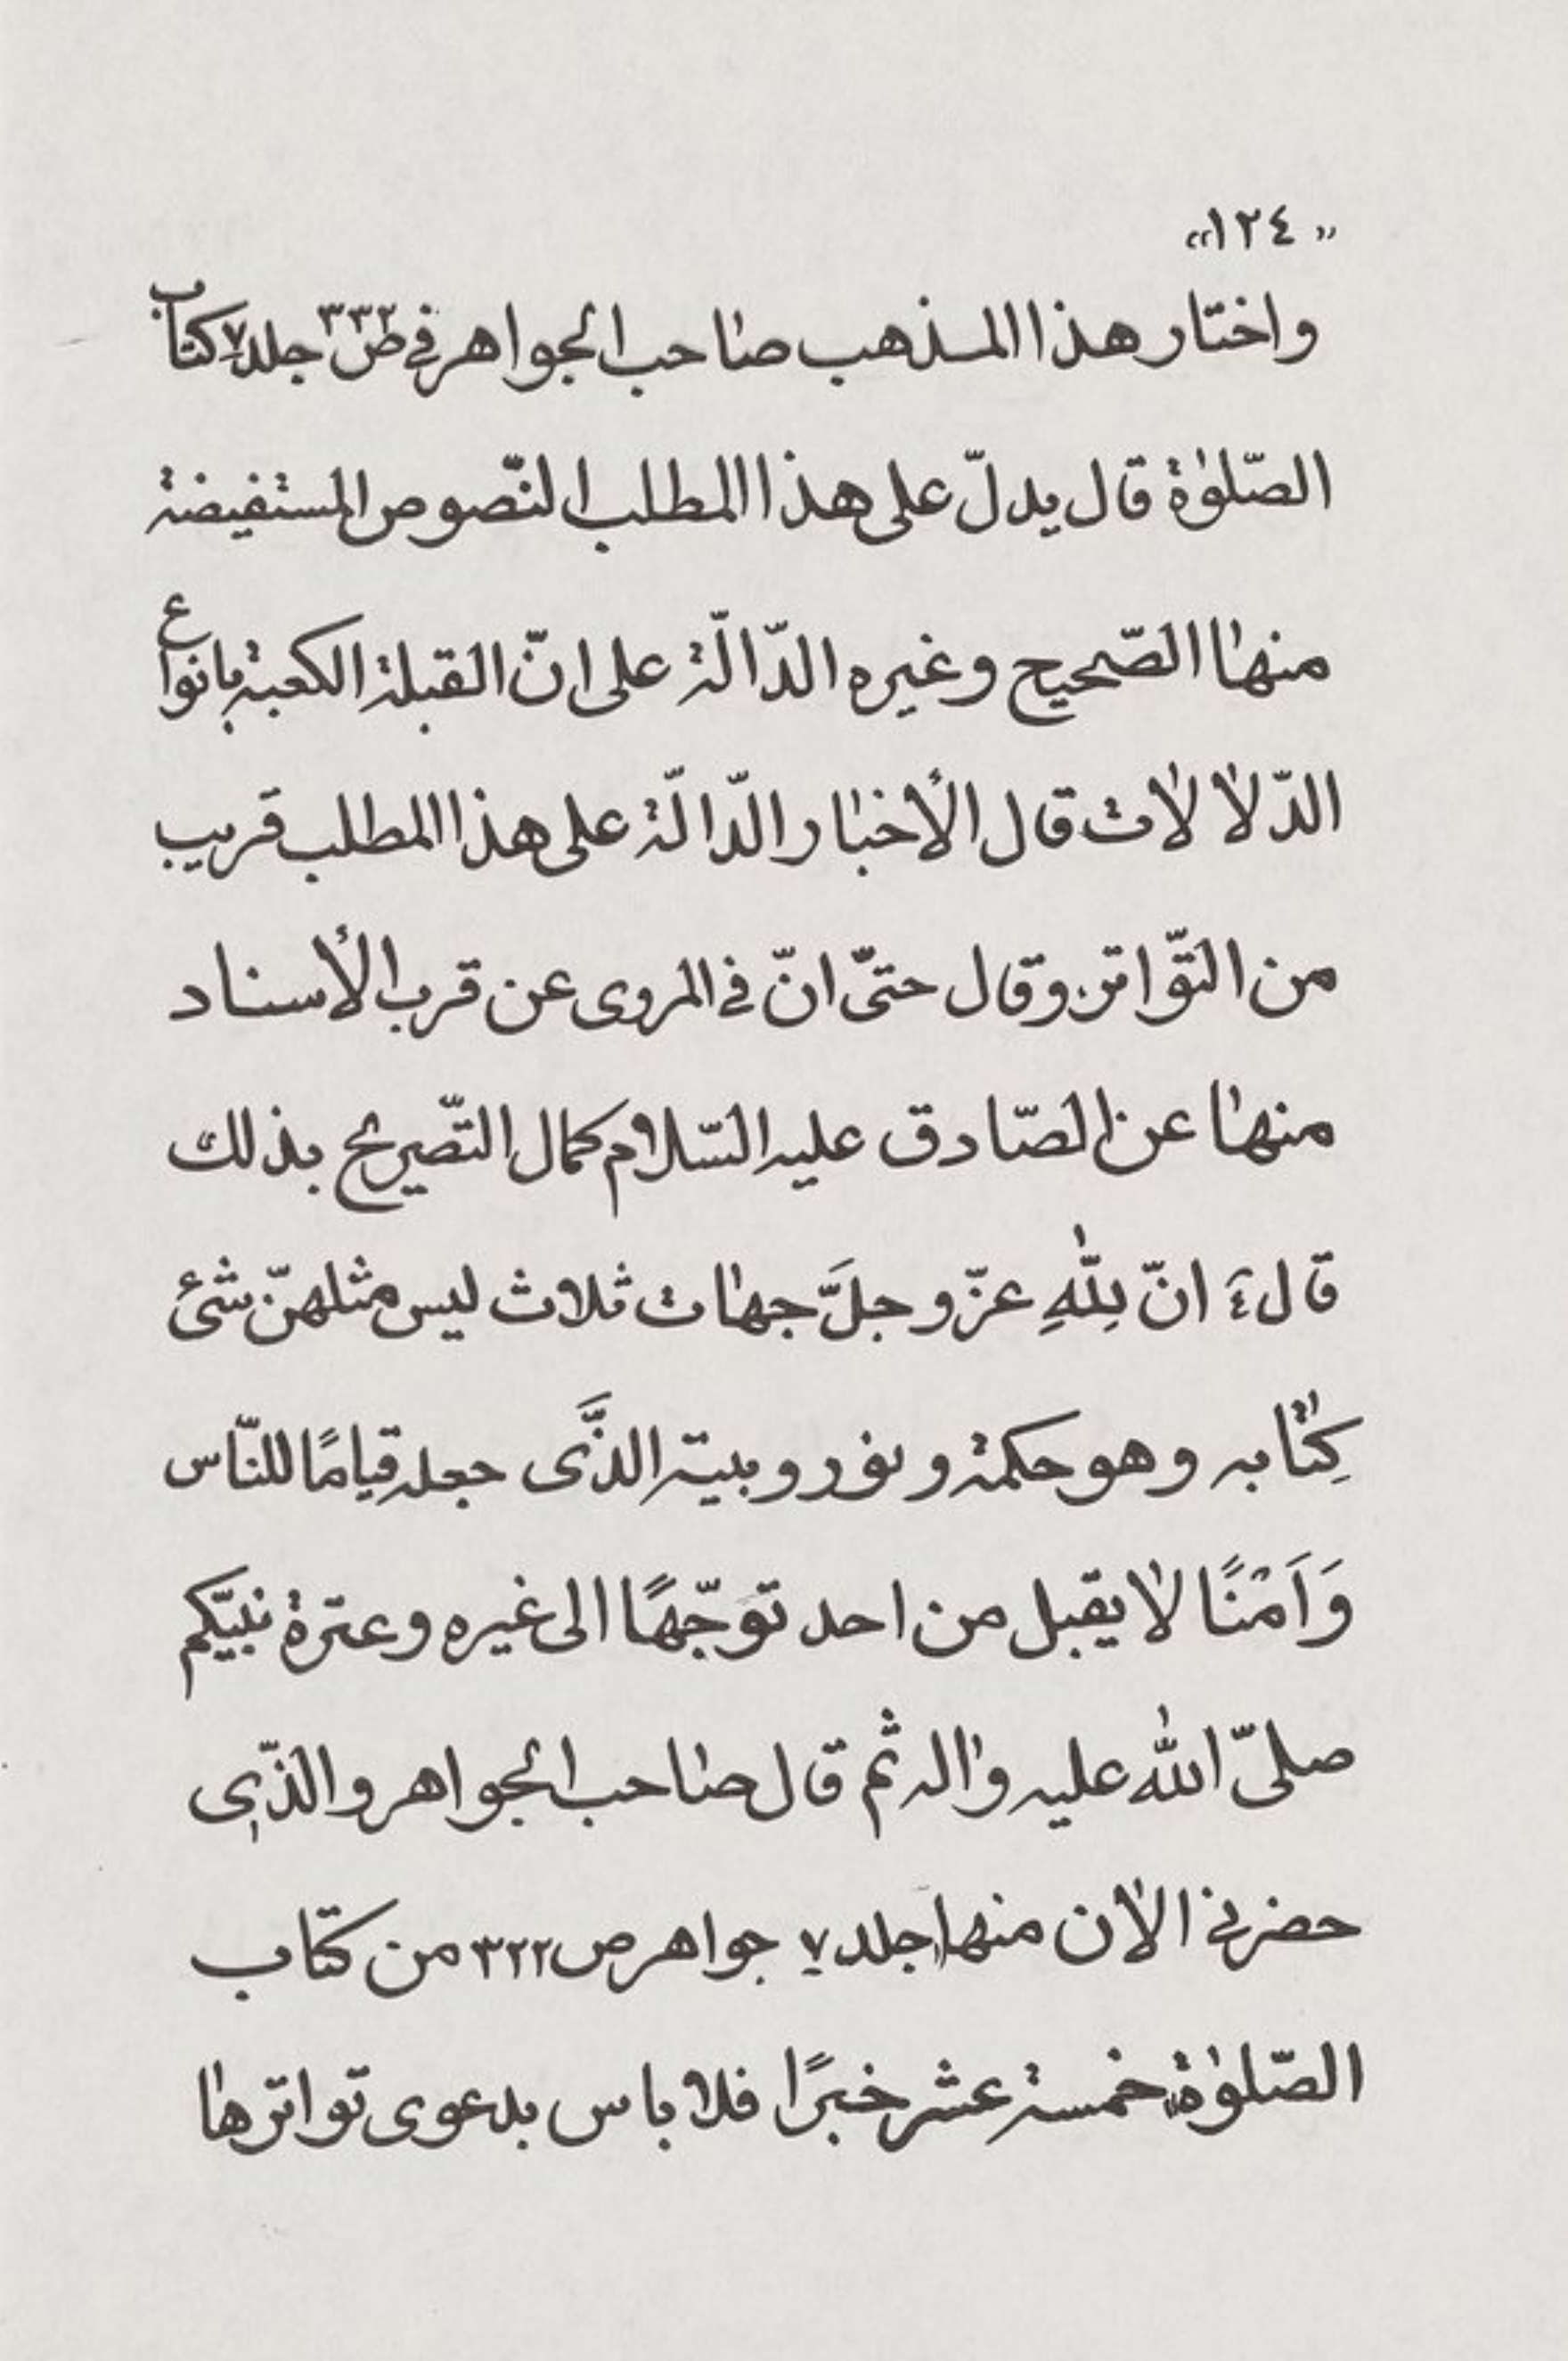 «١٢٤»
واختار هذا المذهب صاحب الجواهر في ص ٣٣٢ جلد ٧ كتاب
الصّلوٰة قال يدلّ على هذا المطلب النّصوص المستفيضة
منها الصّحيح وغيره الدّالّة على انّ القبلة الكعبة بانواع
الدّلالات قال الأخبار الدّالّة على هذا المطلب قريب
من التّواتر. وقال حتىّ انّ في المروى عن قرب الأسناد
منها عن الصّادق عليه السّلام كمال التّصريح بذلك
قال ع انّ لِلّٰهِ عزّ وجلَّ جهات ثلاث ليس مثلهنّ شئ
كِتٰابه وهو حكمة ونور وبيته الذَّى جعله قيامًا للنّاس
وَاَمْنًا لا يقبل من احد توجّهًا الى غيره وعترة نبيّكم
صلىّ اللّٰه عليه واٰله ثم قال صاحب الجواهر والذّى
حضرني الاٰن منها جلد ٧ جواهر ص ٣٢٢ من كتاب
الصّلوٰة» خمسة عشر خبرًا فلا باس بدعوى تواترها